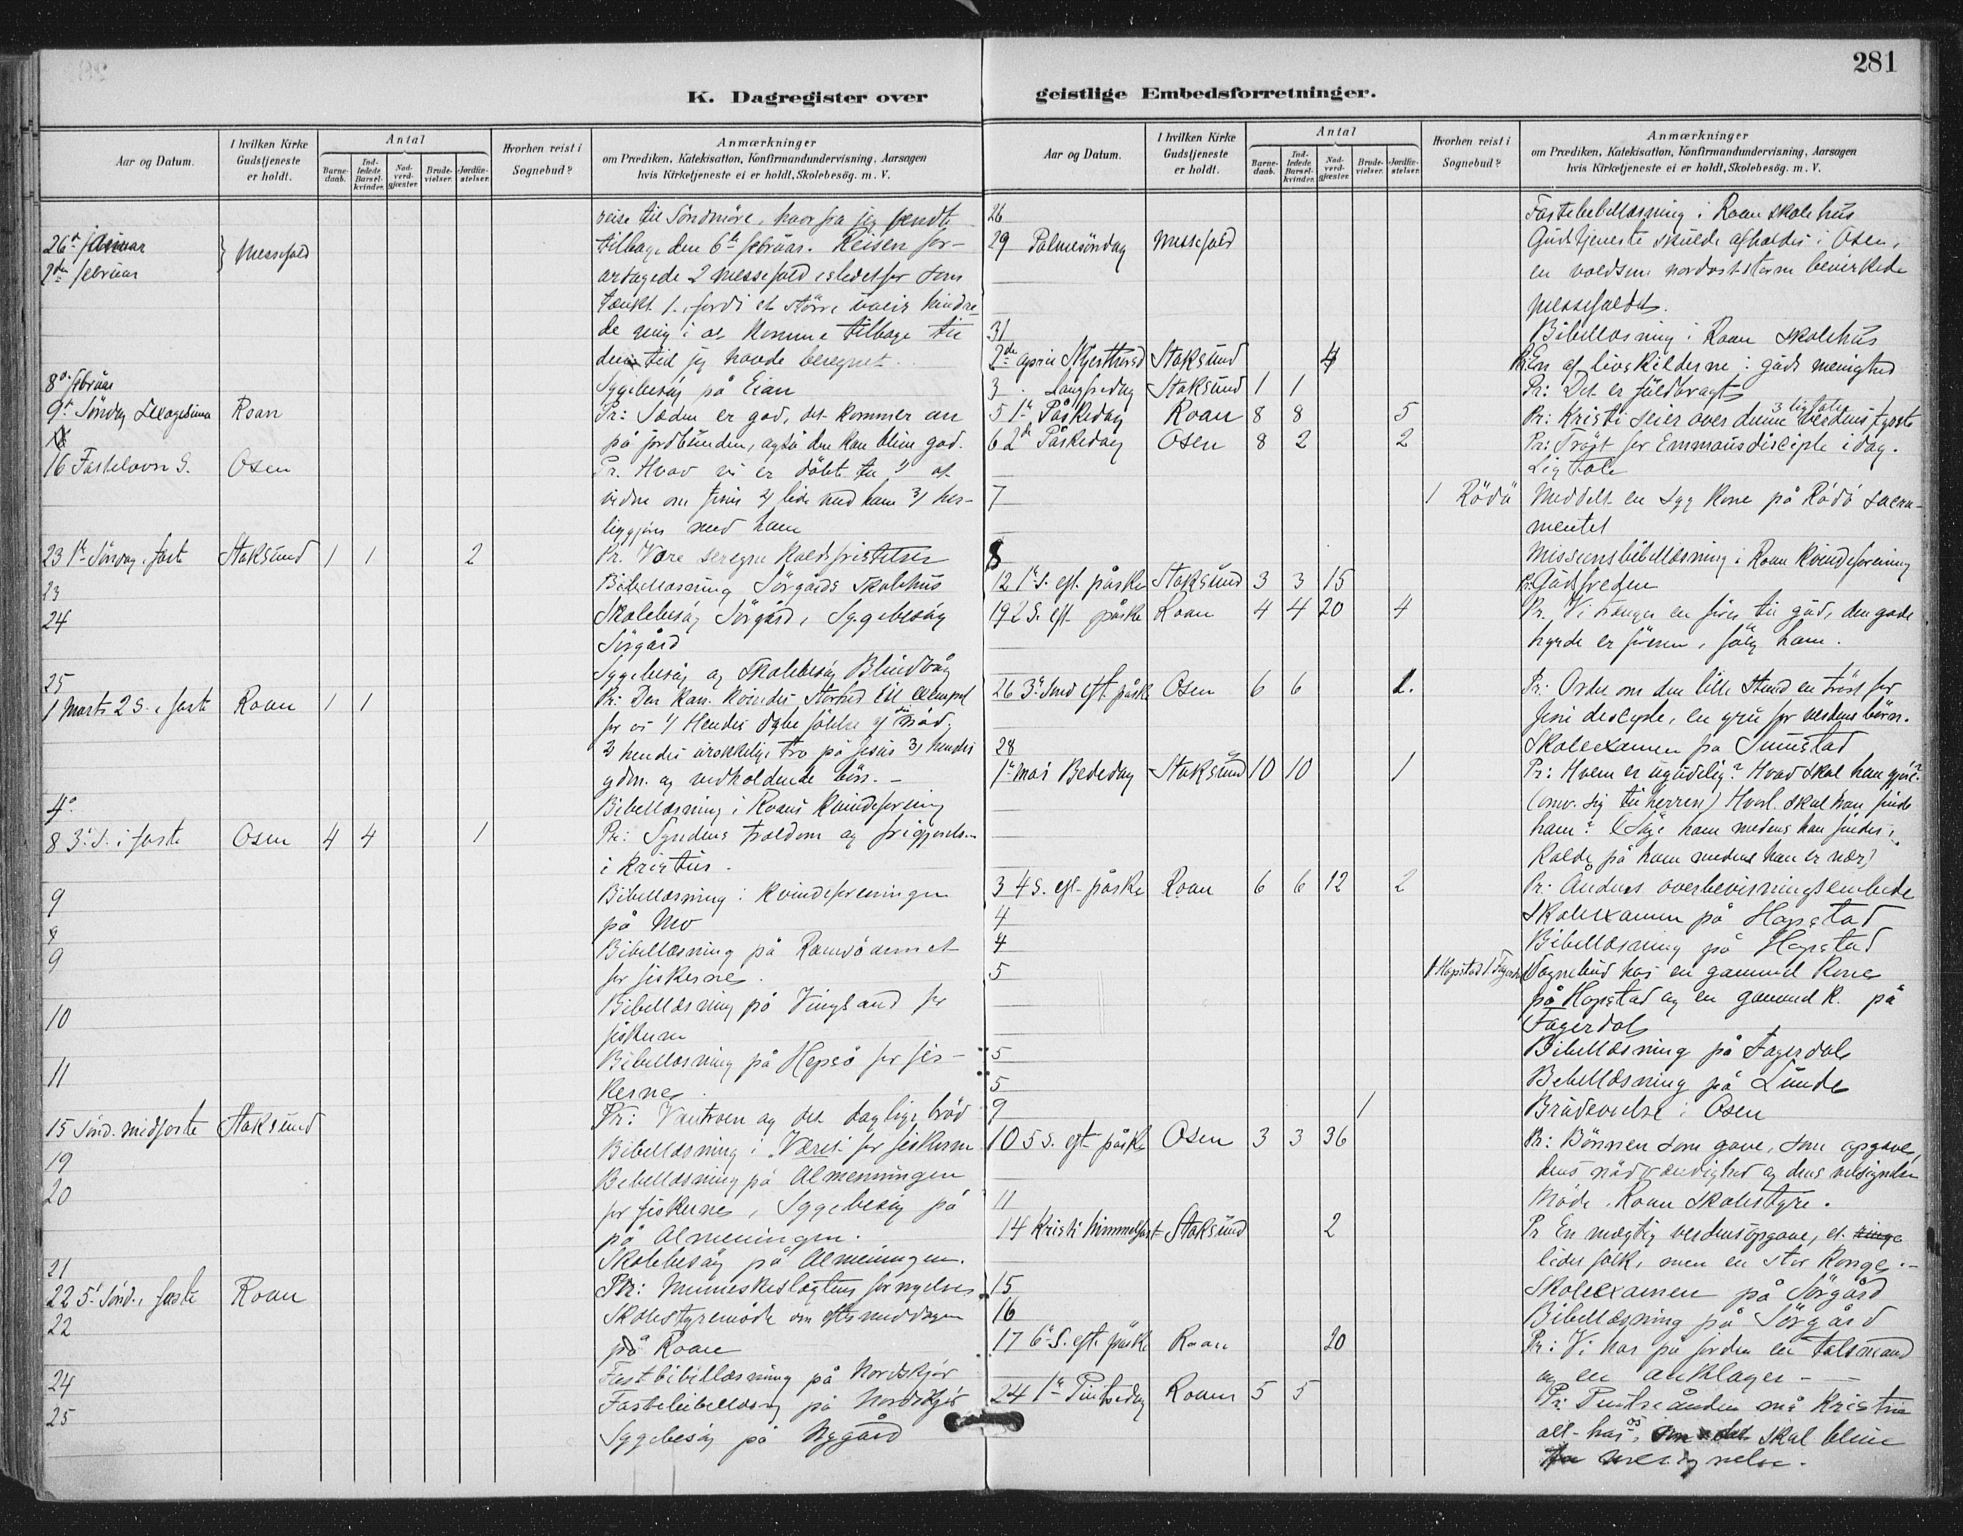 281
K. Dagregister over
geistlige Embedsforretninger.
Aar og Datum.
I hvilken Kirke Gudstjeneste er holdt.
Antal
Barne-daab.
Ind-ledede Barsel-kvinder.
Nad-verd-gjæster.
Brude-vielser.
Jordfæ-stelser.
Hvorhen reist i Sognebud?
Anmærkninger
om Prædiken, Katekisation, Konfirmandundervisning, Aarsagen
hvis Kirketjeneste ei er holdt, Skolebesög. m. V.
reise til Söndmöre, hvorfra jeg vendte
26d januar } Messefald tilbage den 6te februar. Reisen for-
2den februar
2 messefald istedetfor som
tænkt 1, fordi et större uveir hindre-
de mig i at komme tilbage til
den tid jeg havde beregnet.
8d februar Sygebesög på Eian
9d Söndag Sexagesima Roan Pr: Sæden er god, det kommer an
på jordbunden, også den kan blive god.
16 Fastelavn S. Osen Pr. Hvad vi er döbt til 1) at
vidne om Jesus 2) lide med ham 3) her-
liggjöres med ham
23 1te Söndag i faste Stoksund 1 1 2 Pr. Vore kaldsfristelser
23 Bibellæsning Sörgårds Skolehus
24 Skolebesög Sörgård, Sygebesög
Sörgård
25 Sygebesög og Skolebesög Blindvåg
1 Marts 2 S. i faste Roan 1 1 Pr: Den kan. kvindes storhed til exempel
for os 1) Hendes dybe fölelse af nöd,
2) hendes urokkelige tro på Jesus 3) hendes
ydm. og vedholdende bön. –
4d Bibellæsning i Roans Kvindeforening
8 3d S. i faste Osen 4 4 1 Pr: Syndens trældom og frigjörelse
i Kristus.
9 Bibellæsning i Kvindeforeningen
på Mo
9 Bibellæsning på Ramsö
for fiskerne.
10 Bibellæsning på Vingsand for
fiskerne
11 Bibellæsning på Hepsö for fis-
kerne.
15 Sönd. midfaste Stoksund Pr: Vantroen og det daglige bröd
19 Bibellæsning i Været for fiskerne
20 Bibellæsning på Almenningen
for fiskerne, Sygebesög på
på Almeningen.
21 Skolebesög på Almeningen.
22 5te Sönd. i faste Roan Pr: Menneskeslægtens fornyelse
22 Skolestyremöde om eftermiddagen
på Roan
24 Fastebibellæsning på Nordskjör
25 Fastebibellæsng på Nordskjör
Sygebesög på Nygård
Aar og Datum.
I hvilken Kirke Gudstjeneste er holdt.
Antal
Barne-daab.
Ind-ledede Barsel-kvinder.
Nad-verd-gjæster.
Brude-vielser.
Jordfæ-stelser.
Hvorhen reist i Sognebud?
Anmærkninger
om Prædiken, Katekisation, Konfirmandundervisning, Aarsagen
hvis Kirketjeneste ei er holdt, Skolebesög. m. V.
26 Fastebibellæsning i Roan skolehus
29 Palmesöndag Messefald Gudstjeneste skulde afholdes i Osen,
en voldsom nordoststorm bevirkede
messefaldet.
31 Bibellæsning i Roan Skolehus
2de april Skjærthorsd Stoksund 4 Pr: En af livskilderne i guds menighed
3 Langfredag Stoksund 1 1 Pr: Det er fuldbragt
5 1te Påskedag Roan 8 8 5 Pr: Kristi seier over denne verdens fyrste
3 ligtaler
6 2de Påskedag Osen 8 2 2 Pr: Tröst for Emmausdisciple i dag.
Ligtale
7 1 Rödö Meddelt en syg kone på Rödö sacra-
mentet
8 Missionsbibellæsning i Roan Kvindeforening
12 1te S. eft. påske Stoksund 3 3 15 Pr: Gudsfreden
19 2 S. eft. påske Roan 4 4 20 4 Pr. Vi trænger en förer til gud, den gode
hyrde er föreren, fölg ham.
26 3d Sönd eft. påske Osen 6 6 1. Pr: Ordet om den lille stund en tröst for
Jesu disciple, en gru for verdens börn.
28 Skoleexamen fra Sumstad
1te mai Bededag Stoksund 10 10 1 Pr: Hvem er ugudelig? Hvad skal han gjöre?
(omv. sig til herren) Hvorl. skal han finde
ham? (Söge ham medens han findes,
Kalde på ham medens han er nær)
3 4 S. eft. påske Roan 6 6 12 2 Pr: Åndens overbevisningsembede
4 Skolexamen på Hopstad
4 Bibellæsning på Hopstad
5 1 Hopstad 1 Fagerdal Sognebud hos en gammel kone
på Hopstad og en gammel k. på
Fagerdal
5 Bibellæsning på Fagerdal
5 Bibellæsning på Sunde
9 1 Brudevielse i Osen
10 5 S. eft påske Osen 3 3 36 Pr: Bönnen som gave, som opgave,
dens nödvendighed og dens velsignelse
11 Möde i Roan Skolestyre.
14 Kristi himmelfart Stoksund 2 Pr En mægtig verdensopgave, et ringe
lidet folk, men en stor konge. –
15 Skoleexamen på Sörgård
16 Bibellæsning på Sörgård
17 6te S. eft. påske Roan 20 Pr: Vi har på jorden en talsmand
og en anklager –
24 1te Pintsedag Roan 5 5 Pr: Pintseånden må Kristne
alt. has, skal blive
velsignelse.